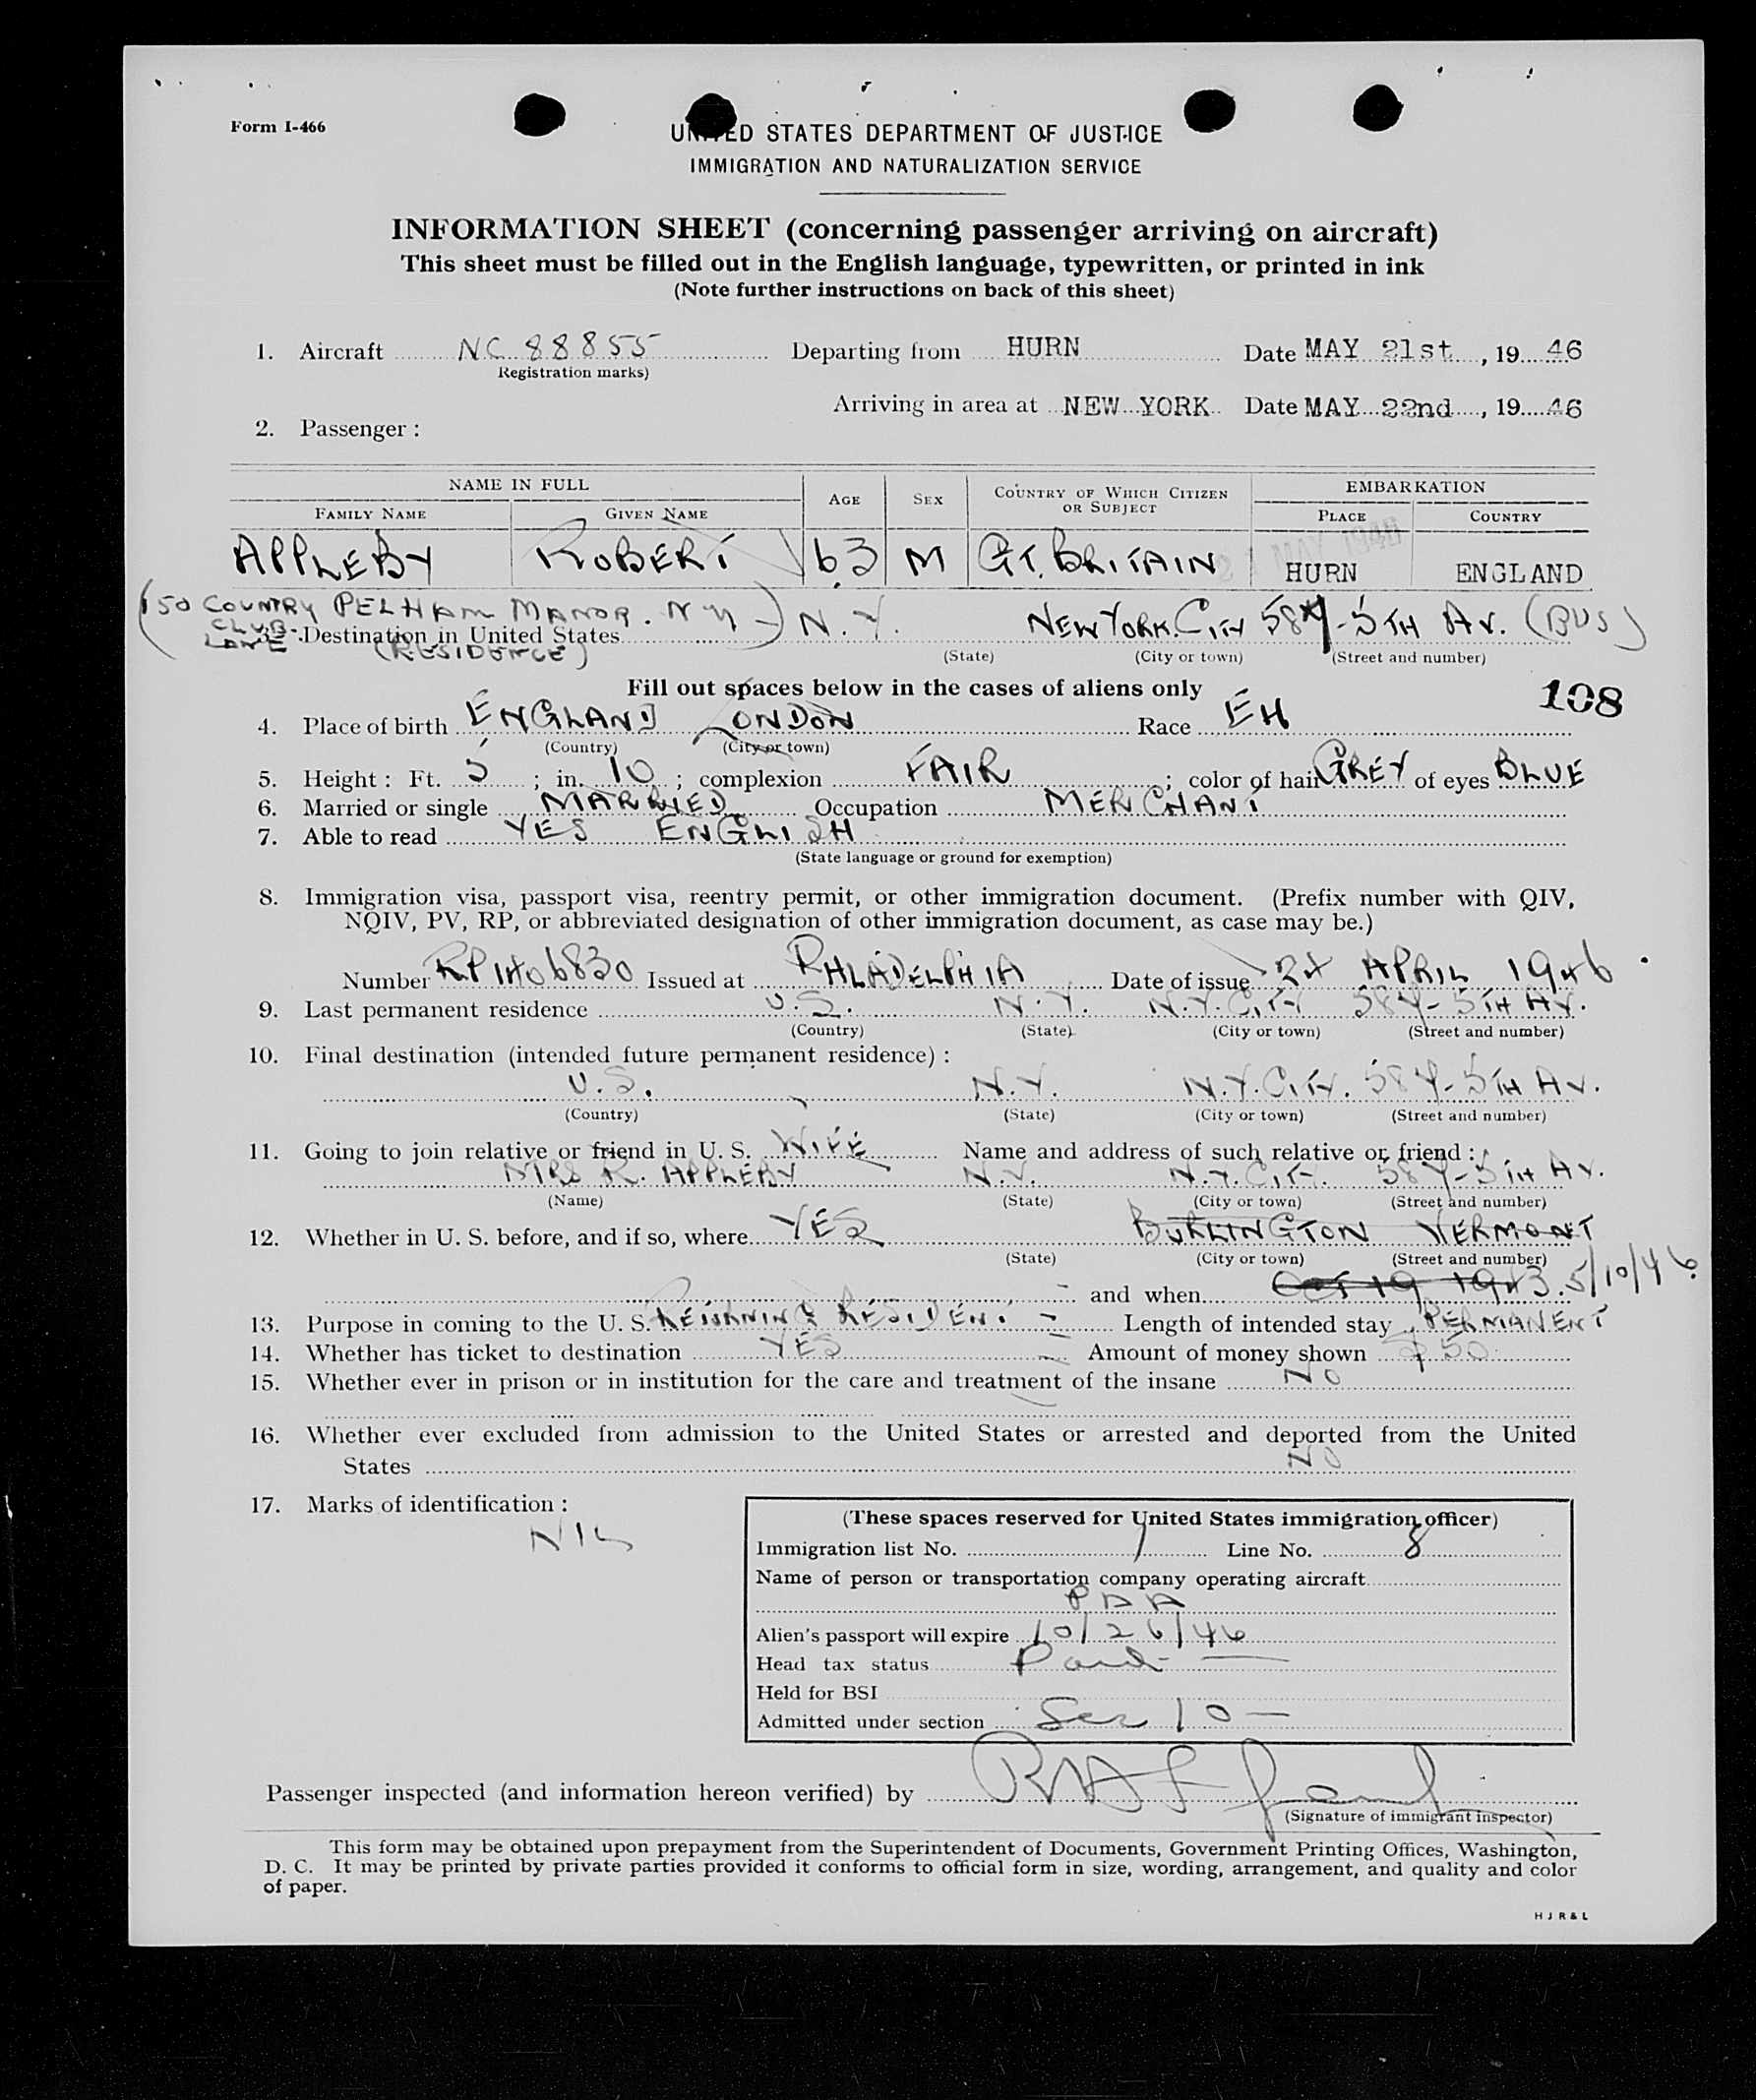 Form I-466
UNITED STATES DEPARTMENT OF JUSTICE
IMMIGRATION AND NATURALIZATION SERVICE
INFORMATION SHEET (concerning passenger arriving on aircraft)
This sheet must be filled out in the English language, typewritten, or printed in ink
(Note further instructions on back of this sheet)
1. Aircraft NC 88855 Departing from HURN Date MAY 21st, 19 46
Registration marks)
Arriving in area at NEW YORK Date MAY 22nd, 19 46
2. Passenger:
NAME IN FULL AGE SEX COUNTRY OF WHICH CITIZEN OR SUBJECT EMBARKATION
FAMILY NAME GIVEN NAME PLACE COUNTRY
APPLEBY ROBERT 63 M GT. BRITAIN HURN ENGLAND
(50 COUNTRY CLUB LANE PELHAM MANOR. N Y)
3. Destination in United States N.Y. NEW YORK CITY 587-5TH AV. (BUS)
(RESIDENCE) (State) (City or town) (Street and number)
Fill out spaces below in the cases of aliens only
108
4. Place of birth ENGLAND LONDON Race EH
(Country) (City or town)
5. Height: Ft. 5; in. 10; complexion FAIR; color of hair GREY of eyes BLUE
6. Married or single MARRIED Occupation MERCHANT
7. Able to read YES ENGLISH
(State language or ground for exemption)
8. Immigration visa, passport visa, reentry permit, or other immigration document. (Prefix number with QIV,
NQIV, PV, RP, or abbreviated designation of other immigration document, as case may be.)
Number RP 1406830 Issued at PHLADELPHIA Date of issue 24 APRIL 1946
9. Last permanent residence U.S. N.Y. N.Y. CITY 587-5TH AV.
(Country) (State) (City or town) (Street and number)
10. Final destination (intended future permanent residence):
U.S. N.Y. N.Y. CITY. 587-5TH AV.
(Country) (State) (City or town) (Street and number)
11. Going to join relative or friend in U. S. WIFE Name and address of such relative or friend:
MRS R. APPLEBY N.Y. N.Y. CITY. 587-5TH AV.
(Name) (State) (City or town) (Street and number)
12. Whether in U. S. before, and if so, where YES BURLINGTON VERMONT
(State) (City or town) (Street and number)
and when OCT 19 1943. 5/10/46
13. Purpose in coming to the U. S. RETURNING RESIDENT - Length of intended stay PERMANENT
14. Whether has ticket to destination YES Amount of money shown $50
15. Whether ever in prison or in institution for the care and treatment of the insane NO
16. Whether ever excluded from admission to the United States or arrested and deported from the United
States NO
17. Marks of identification:
NIL
(These spaces reserved for United States immigration officer)
Immigration list No. 1 Line No. 8
Name of person or transportation company operating aircraft
PAA
Alien's passport will expire 10/26/46
Head tax status Paid
Held for BSI
Admitted under section Sec 10 —
Passenger inspected (and information hereon verified) by
(Signature of immigrant inspector)
This form may be obtained upon prepayment from the Superintendent of Documents, Government Printing Offices, Washington,
D. C. It may be printed by private parties provided it conforms to official form in size, wording, arrangement, and quality and color
of paper.
H J R & L